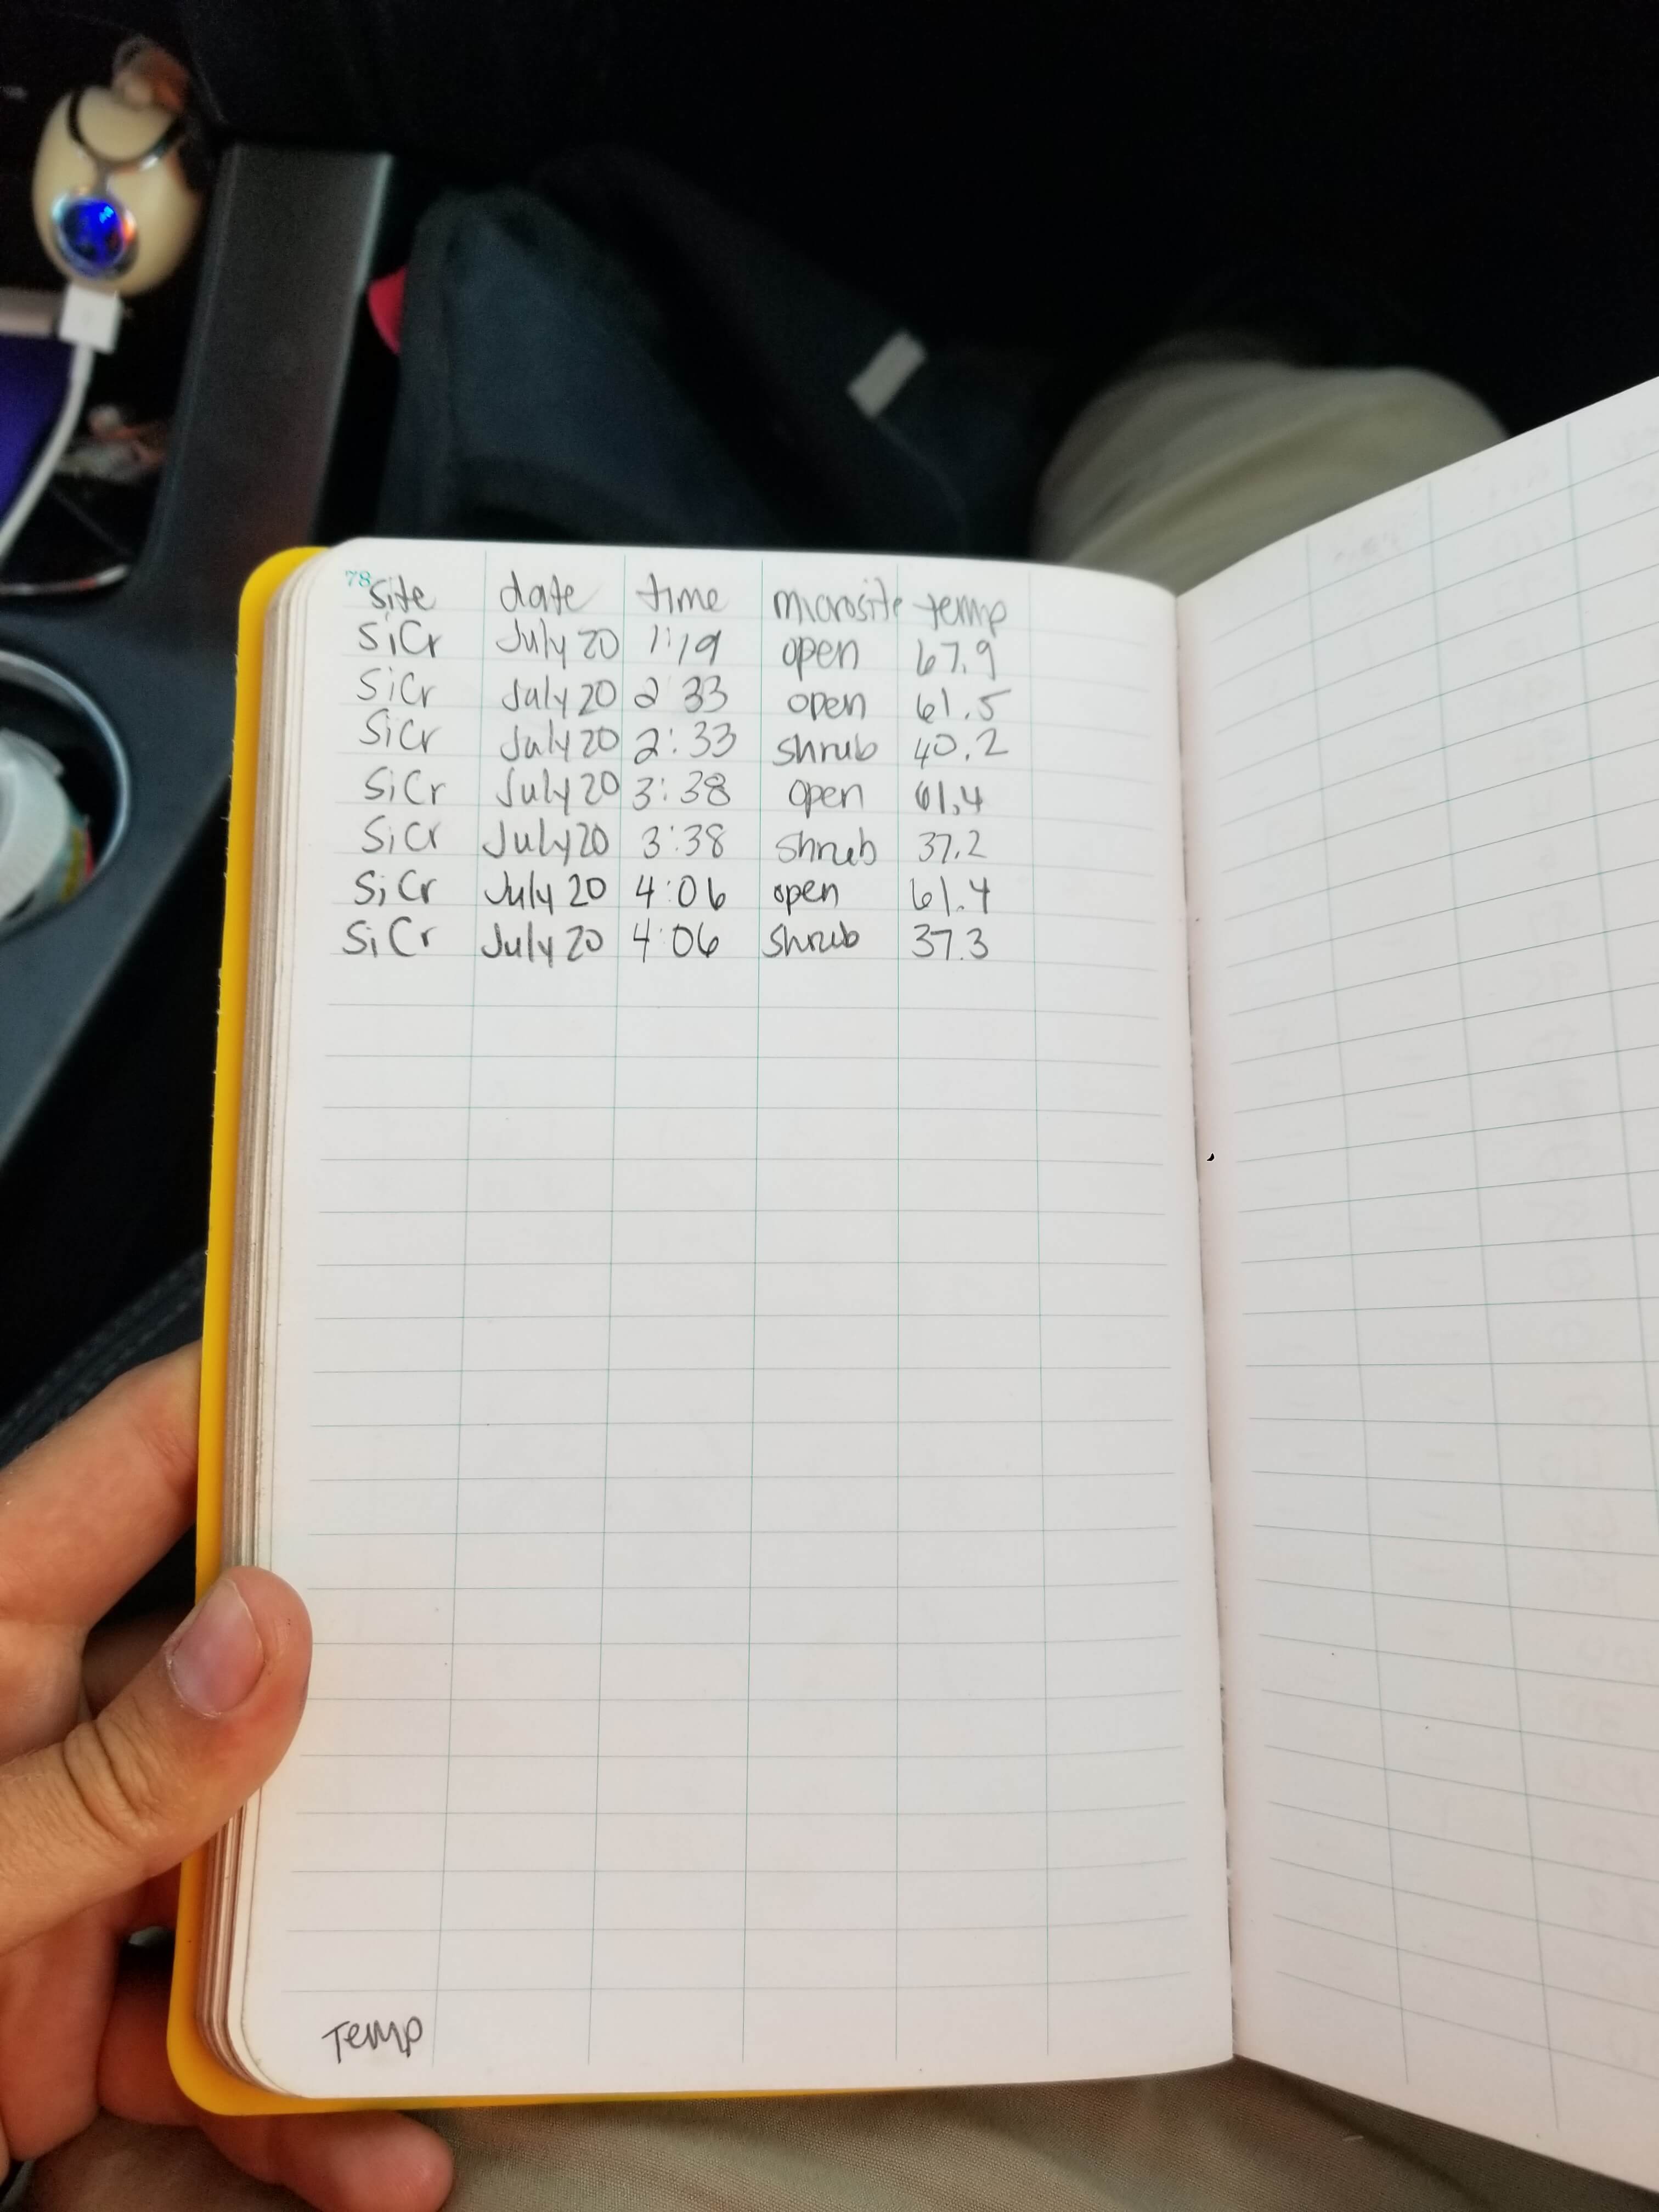 78
site date time microsite temp
SiCr July 20 1:19 open 67.9
SiCr July 20 2 33 open 61.5
SiCr July 20 2:33 shrub 40.2
SiCr July 20 3:38 open 61.4
SiCr July 20 3:38 shrub 37.2
SiCr July 20 4:06 open 61.4
SiCr July 20 4:06 shrub 37.3
Temp